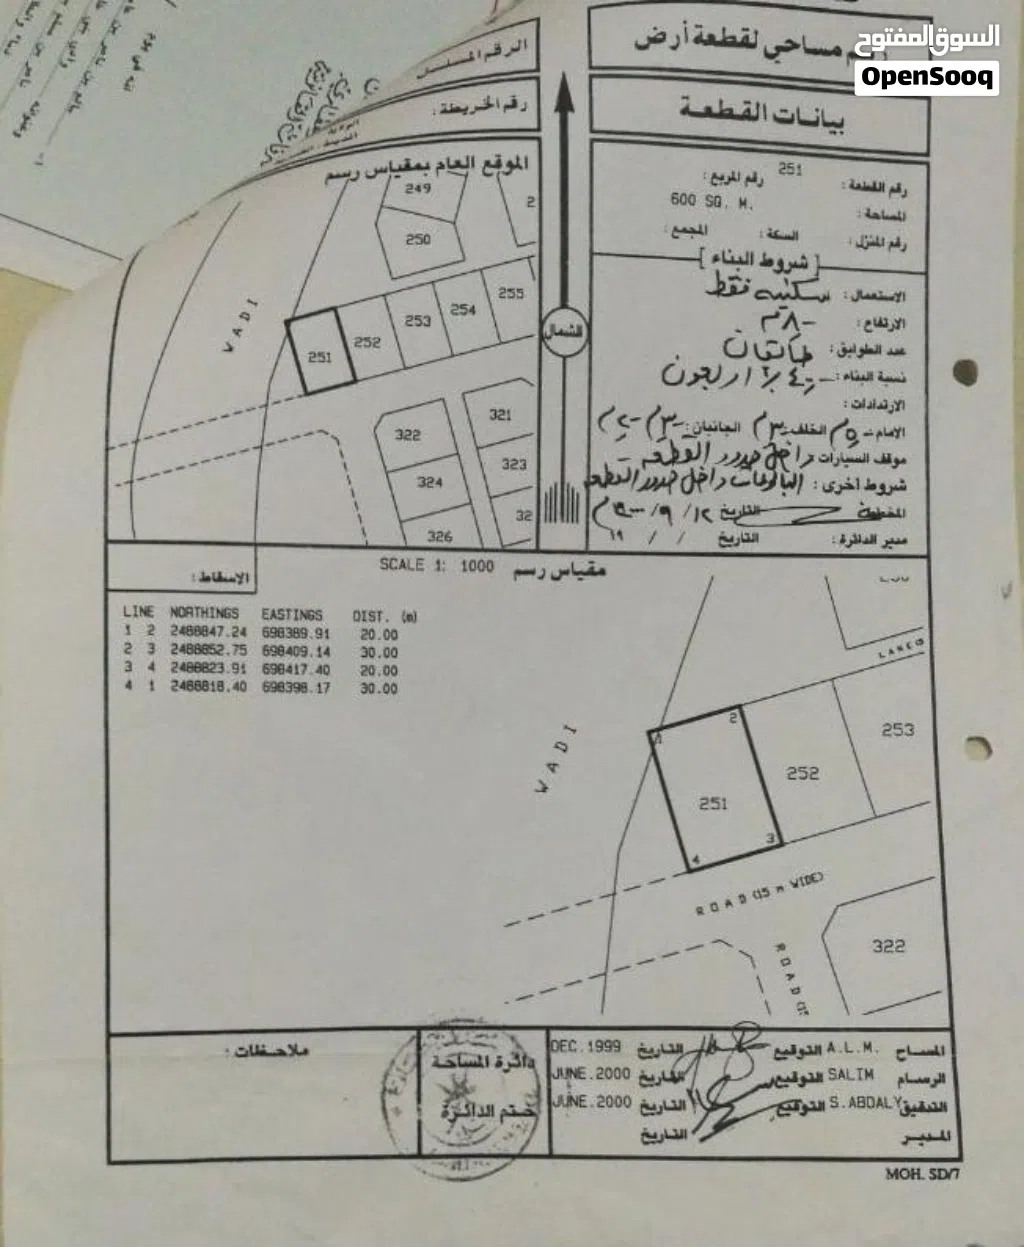 السوق المفتوح
OpenSooq
مساحي لقطعة أرض
بيانات القطعة
رقم القطعة : 251 رقم المربع :
المساحة : 600 SQ. M.
رقم المنزل : السكة : المجمع :
[ شروط البناء ]
الاستعمال : سكنيه فقط
الارتفاع : ٨م
عدد الطوابق : طابقان
نسبة البناء : ٤٠٪
الارتدادات :
الامام ٥م الخلف ٣م الجانبان :
موقف السيارات داخل حدود القطعه
شروط أخرى : البالوعات داخل حدود القطعه
المخطط التاريخ ١٢ / ٩ /
مدير الدائرة : التاريخ / / ١٩
الشمال
الرقم المسلسل
رقم الخريطة :
الموقع العام بمقياس رسم
249
250
2
WADI
251
252
253
254
255
321
322
323
324
32
326
SCALE 1: 1000 مقياس رسم
الاسقاط :
LINE NORTHINGS EASTINGS DIST. (m)
1 2 2488847.24 698389.91 20.00
2 3 2488852.75 698409.14 30.00
3 4 2488823.91 698417.40 20.00
4 1 2488818.40 698398.17 30.00
WADI
1
2
3
4
251
252
253
ROAD (15 m WIDE)
ROAD
322
المساح A.L.M. التوقيع التاريخ DEC.1999
الرسام SALIM التوقيع التاريخ JUNE.2000
التدقيق S.ABDALY التوقيع التاريخ JUNE.2000
المدير التاريخ
دائرة المساحة
ختم الدائرة
ملاحظات :
MOH. SD/7